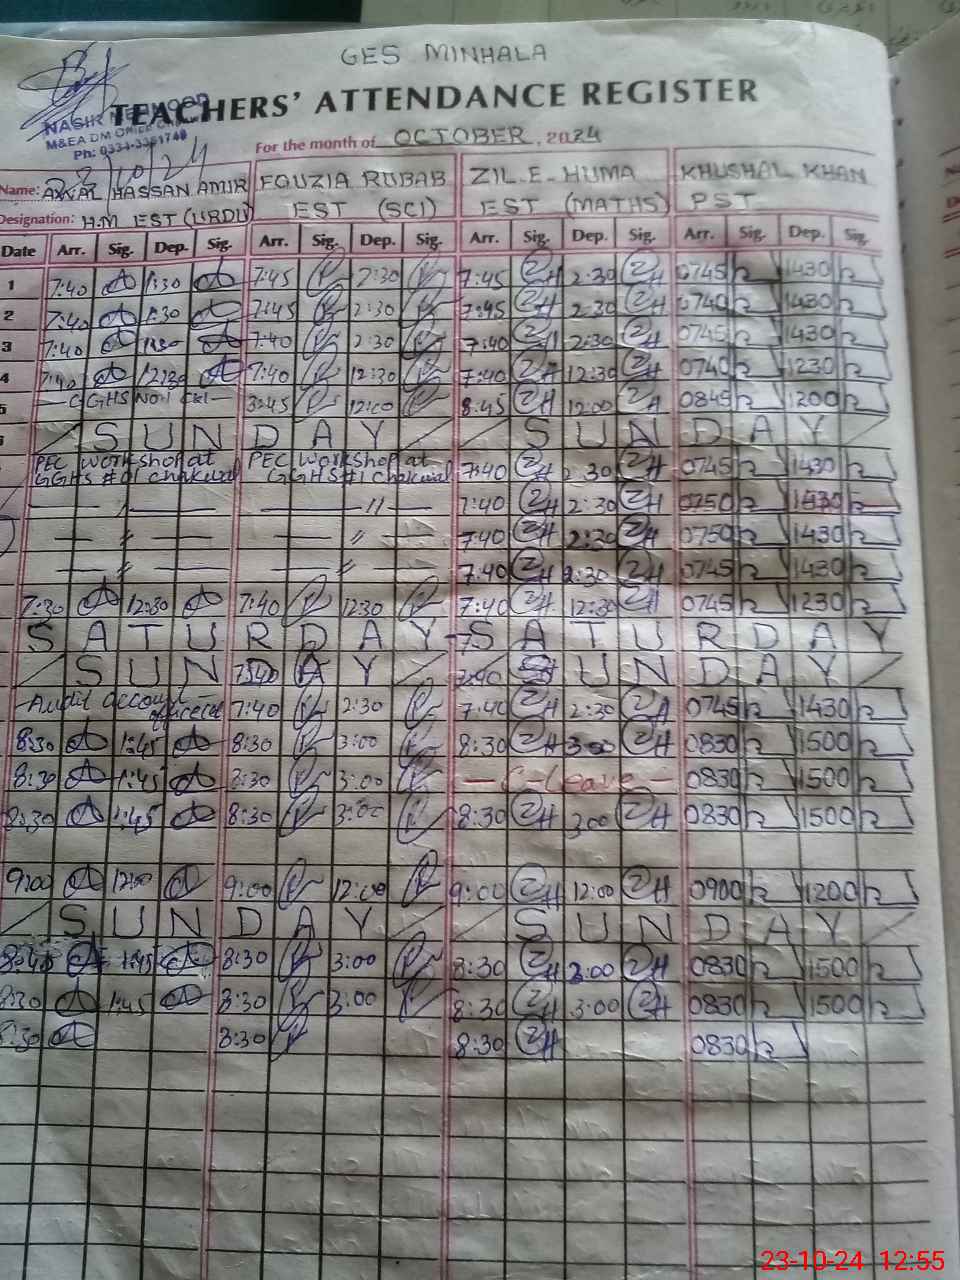 GES MINHALA
TEACHERS' ATTENDANCE REGISTER
NASIR MEHMOOD
M&EA DM Office
Ph: 0334-3361740
/10/24
For the month of OCTOBER, 2024
Name: HASSAN AMIR FOUZIA RUBAB ZIL-E-HUMA KHUSHAL KHAN
Designation: H.M EST (URDU) EST (SCI) EST (MATHS) PST
Date Arr. Sig. Dep. Sig. Arr. Sig. Dep. Sig. Arr. Sig. Dep. Sig. Arr. Sig. Dep. Sig.
1 7:40 1:30 7:45 2:30 7:45 ZH 2:30 ZH 0745 1430
2 7:40 1:30 7:45 2:30 7:45 ZH 2:30 ZH 0740 1430
3 7:40 7:40 2:30 7:40 ZH 2:30 ZH 0745 1430
4 7:40 12:30 7:40 12:30 7:40 ZH 12:30 ZH 0740 1230
5 GGHS No.1 12:00 8:45 ZH 12:00 ZH 0845 1200
SUNDAY SUNDAY
PEC workshop at PEC workshop at 7:40 ZH 2:30 ZH 0745 1430
GGHS #01 Chakwal GGHS #1 Chakwal
7:40 ZH 2:30 ZH 0750 1430
7:40 ZH 2:30 ZH 0750 1430
7:40 ZH 2:30 ZH 0745 1430
7:30 12:30 7:40 12:30 7:40 ZH 12:30 ZH 0745 1230
SATURDAY - SATURDAY
SUNDAY SUNDAY
Audit account 7:40 2:30 7:40 ZH 2:30 ZH 0745 1430
8:30 1:45 8:30 3:00 8:30 ZH 3:00 ZH 0830 1500
8:30 1:45 8:30 3:00 - C-Leave - 0830 1500
8:30 1:45 8:30 3:00 8:30 ZH 3:00 ZH 0830 1500
9:00 12:00 9:00 12:00 9:00 ZH 12:00 ZH 0900 1200
SUNDAY SUNDAY
1:45 8:30 3:00 8:30 ZH 3:00 ZH 0830 1500
8:30 1:45 8:30 3:00 8:30 ZH 3:00 ZH 0830 1500
8:30 8:30 8:30 ZH 0830
23-10-24 12:55